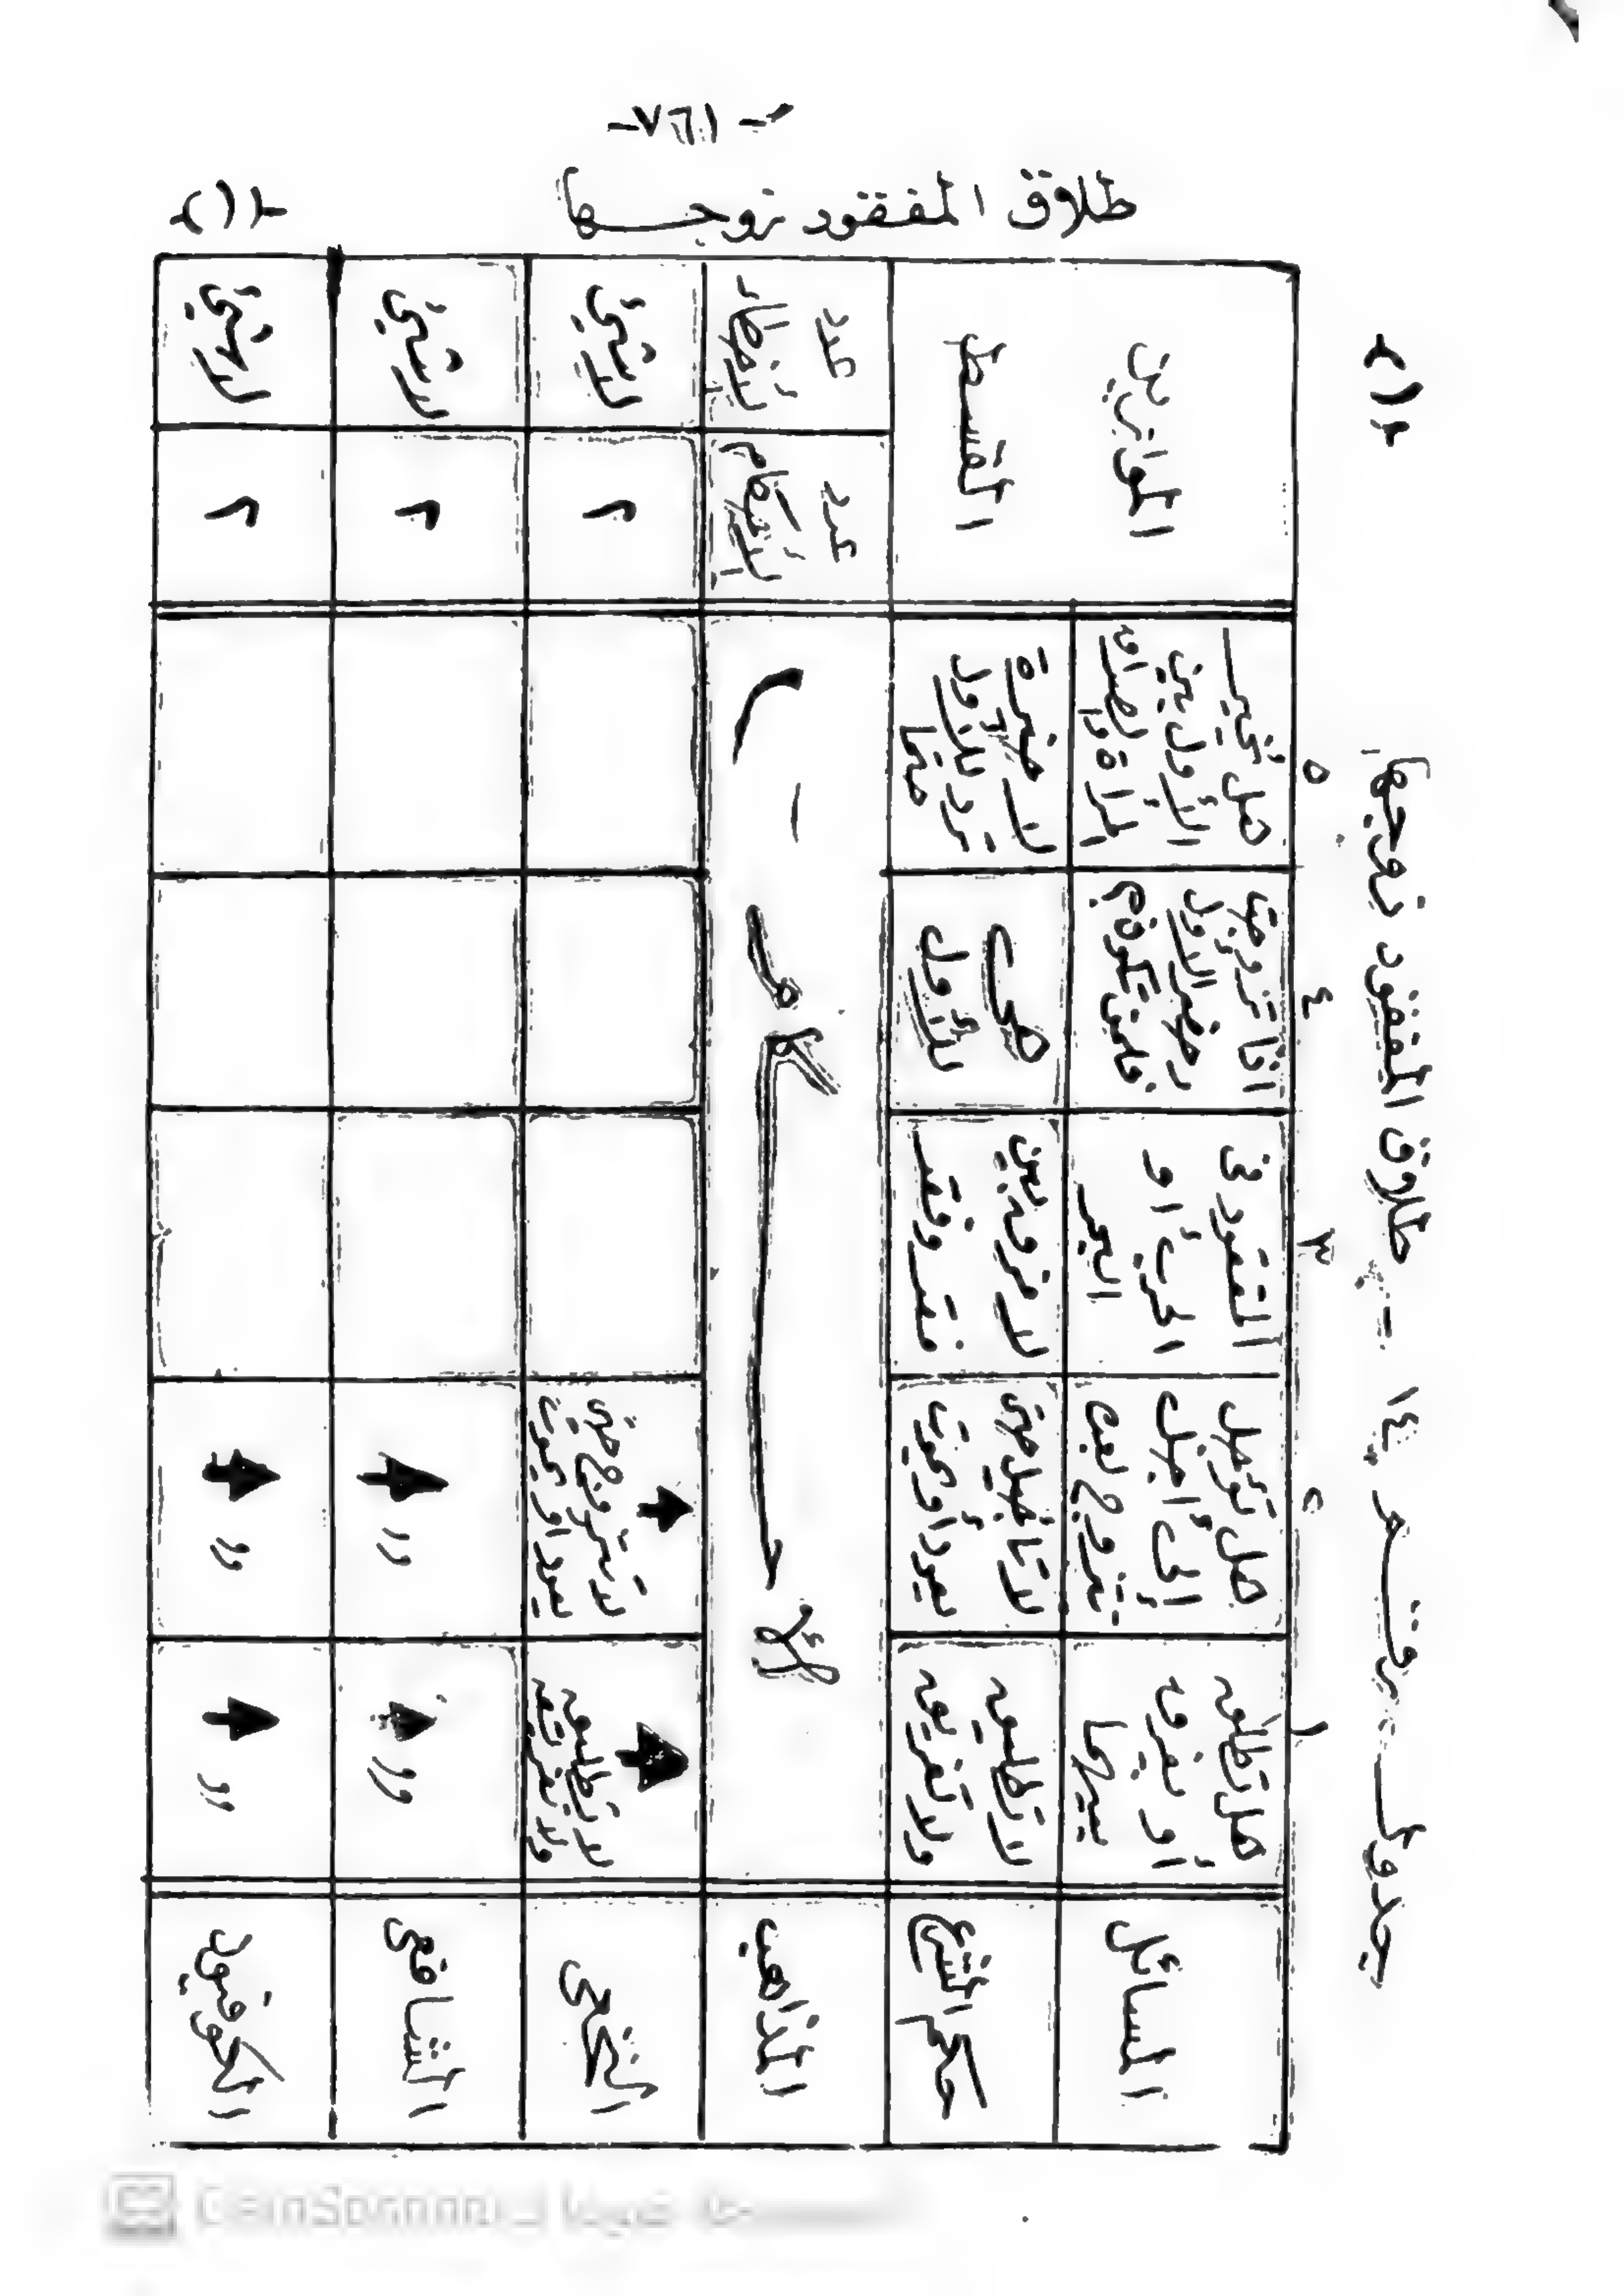 -٧٦١-
طلاق المفقود زوجها (٢)
جدول رقم ١٤ - طلاق المفقود زوجها (٢)
١ ٢ ٣ ٤ ٥
المسائل
هل تطلق
أو يفرق
بينهما
هل تؤجل
إلى أجل
يتزوج بعده
المفقود في
الحرب أو
البحر
إذا تزوجت
وحضر الأول
فلمن تكون
هل تخير
الأول بين
المرأة والصداق
الموازين
القسط
حكم الشرع
لا تطليق
ولا تفريق
لا تأجيل حتى
يعود أو يموت
لا فرق بين
فقد وفقد
هي
للأول
لا خيرة
ترد للأول
حتما
المذاهب
الأحكام
عدد
الأحكام
عدد
الأخطاء
النخعي
لا تطليق
ولا تفريق
لا تتزوج حتى
يعود أو يموت
٢
لا شيء
الشافعي
"
"
٢
لا شيء
الكوفيون
"
"
٢
لا شيء
CamScanner